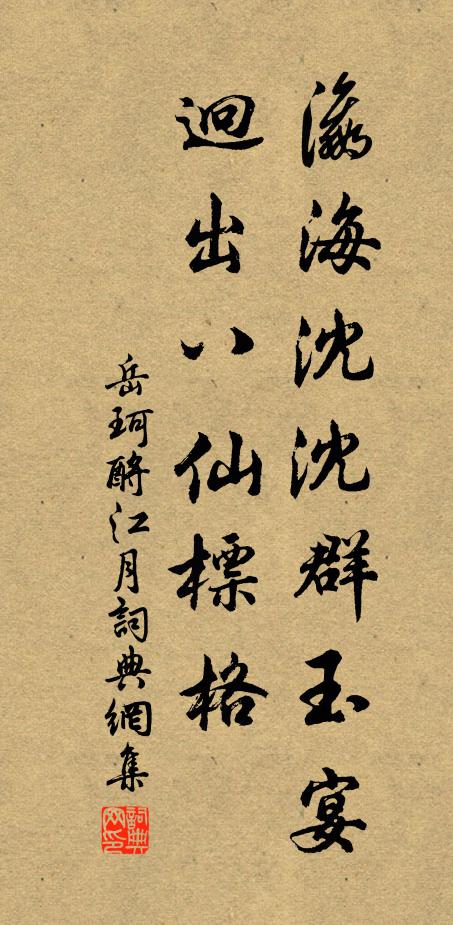 瀛海沈沈群玉宴
迥出八仙標格
岳珂酹江月詞典網集
詞典網印